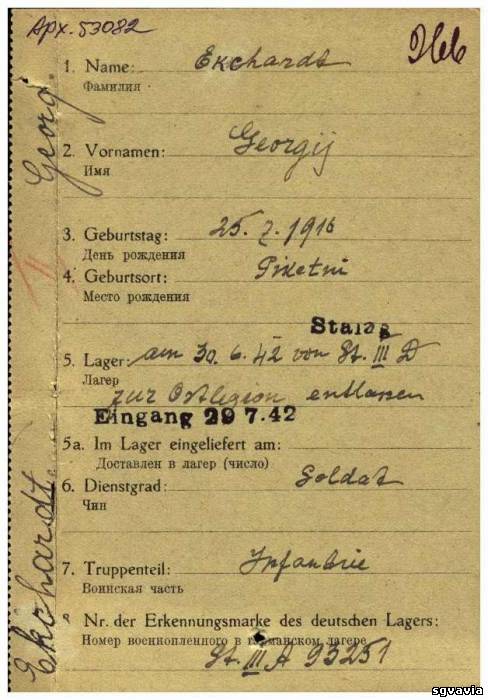 Арх. 53082
1. Name: Ekchardt
Фамилия
2. Vornamen: Georgij
Имя
3. Geburtstag: 25. 7. 1916
День рождения
4. Geburtsort: Piketni
Место рождения
Stalag
5. Lager: am 30. 6. 42 von St. III D
Лагер
zur Ostlegion entlassen
Eingang 29 7.42
5a. Im Lager eingeliefert am:
Доставлен в лагер (число)
6. Dienstgrad: Soldat
Чин
7. Truppenteil: Infantrie
Воинская часть
8 Nr. der Erkennungsmarke des deutschen Lagers:
Номер военнопленного в германском лагере
St. III A 93251
Ekchardt Georg
sgvavia